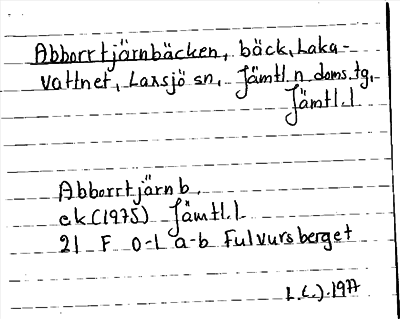 Abborrtjärnbäcken, bäck, Laka-
vattnet, Laxsjö sn, Jämtl. n. doms. tg,
Jämtl. l.
Abborrtjärnb.
ek (1975) Jämtl. l
21 F 0-1 a-b Fulvursberget
1977